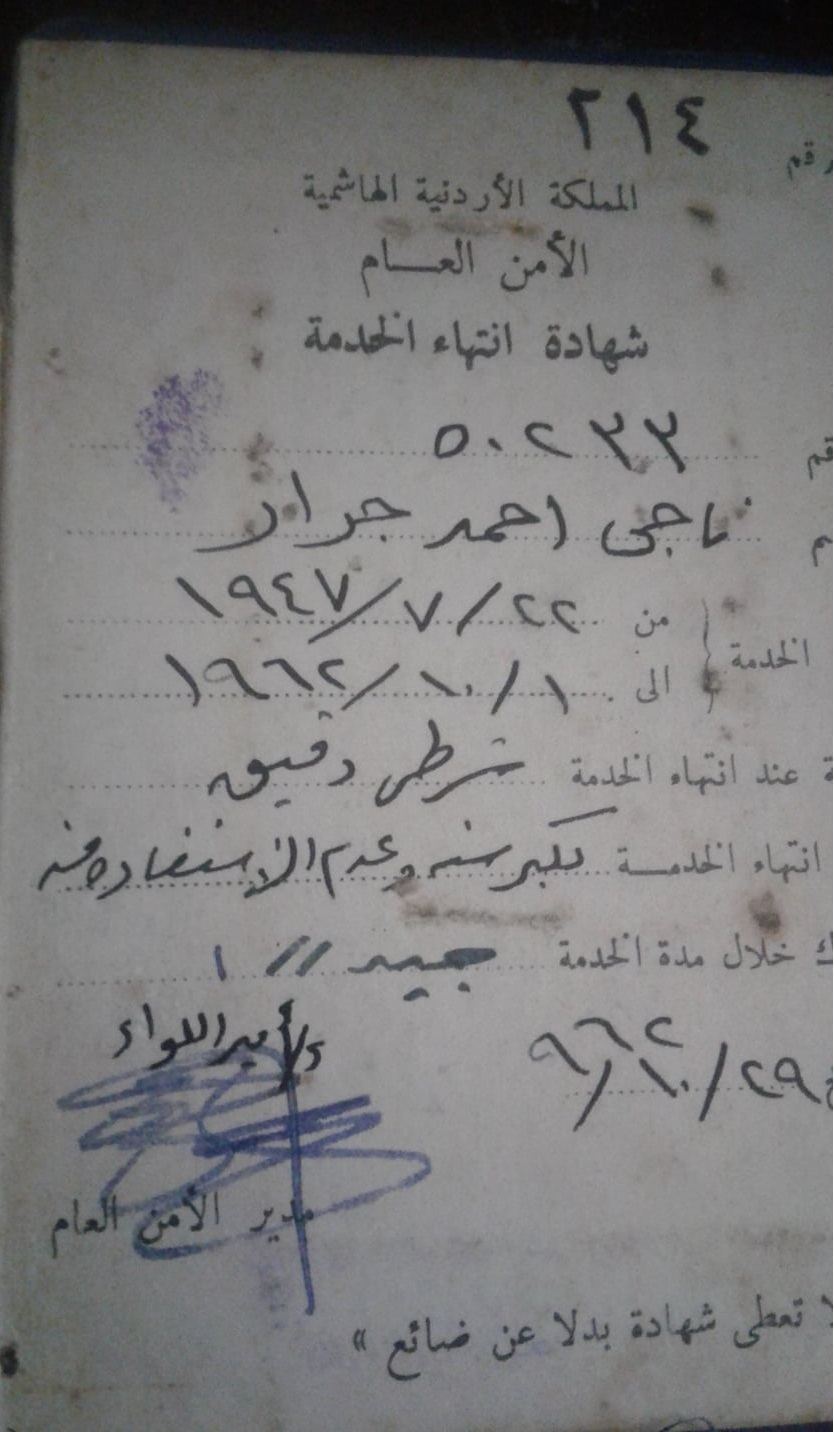 رقم ٢١٤
المملكة الأردنية الهاشمية
الأمن العــام
شهادة انتهاء الخدمة
٥٠٢٣٣
ناجي احمد جرار
الخدمة من ٢٢/٧/١٩٤٧
الى ١/١٠/١٩٦٢
عند انتهاء الخدمة شرطي دقيق
انتهاء الخدمـــة لكبر سنه وعدم الاستفاده منه
خلال مدة الخدمة جيد // ١
٢٩/١٠/٩٦٢
أمير اللواء
مدير الأمن العام
لا تعطى شهادة بدلا عن ضائع »